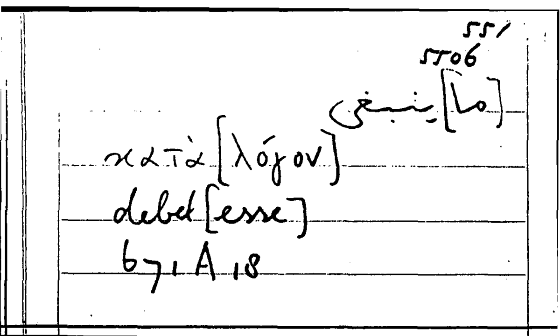 551
5506
[ما] ينبغى
κατὰ [λόγον]
debet [esse]
671 A 18